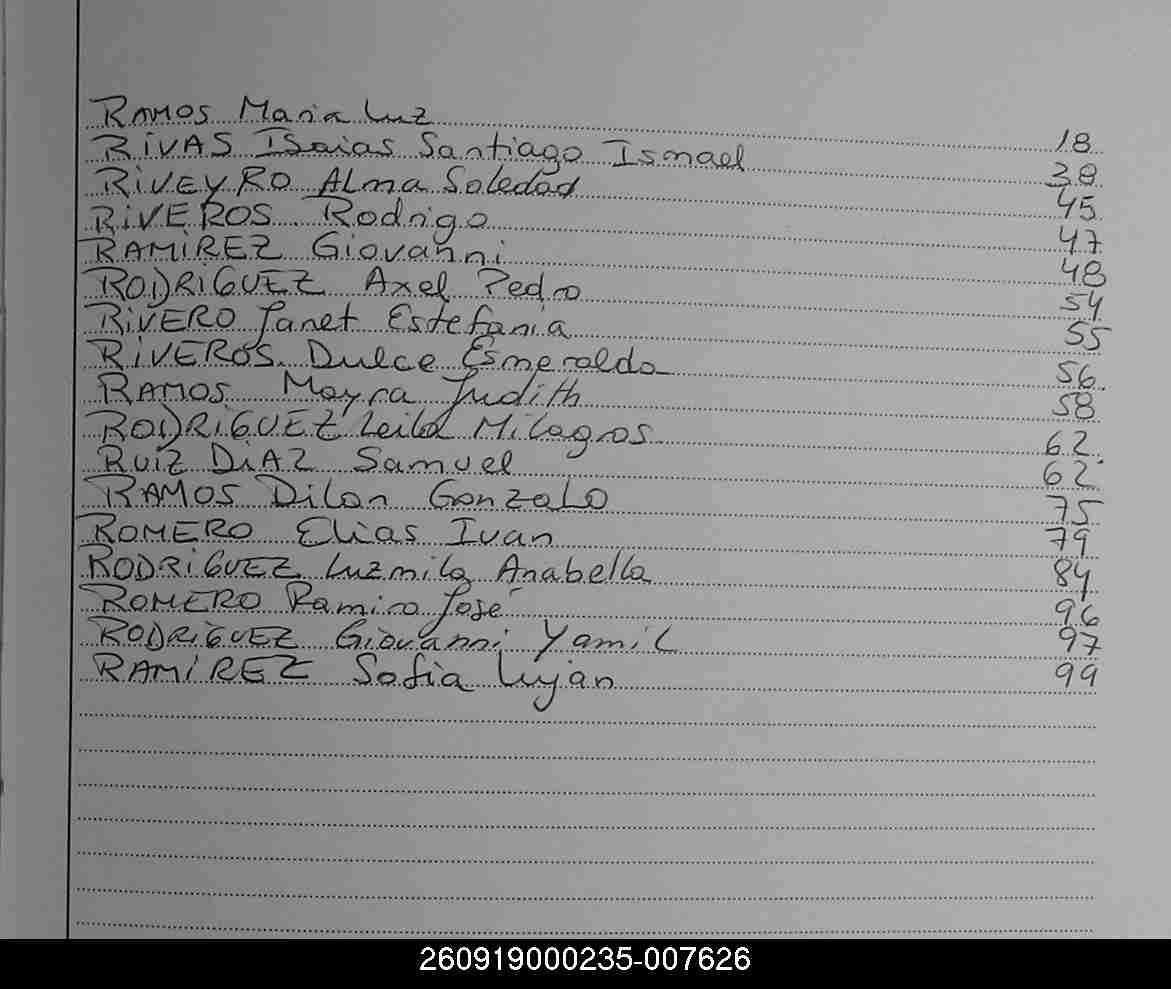 RAMOS Maria Luz 18
RIVAS Isaias Santiago Ismael 38
RIVEYRO Alma Soledad 45
RIVEROS Rodrigo 47
RAMIREZ Giovanni 48
RODRIGUEZ Axel Pedro 54
RIVERO Janet Estefania 55
RIVEROS Dulce Esmeralda 56
RAMOS Mayra Judith 58
RODRIGUEZ Leila Milagros 62
RUIZ DIAZ Samuel 62
RAMOS Dilan Gonzalo 75
ROMERO Elias Ivan 79
RODRIGUEZ Luzmila Anabella 84
ROMERO Ramiro José 96
RODRIGUEZ Giovanni Yamil 97
RAMIREZ Sofia Lujan 99
260919000235-007626